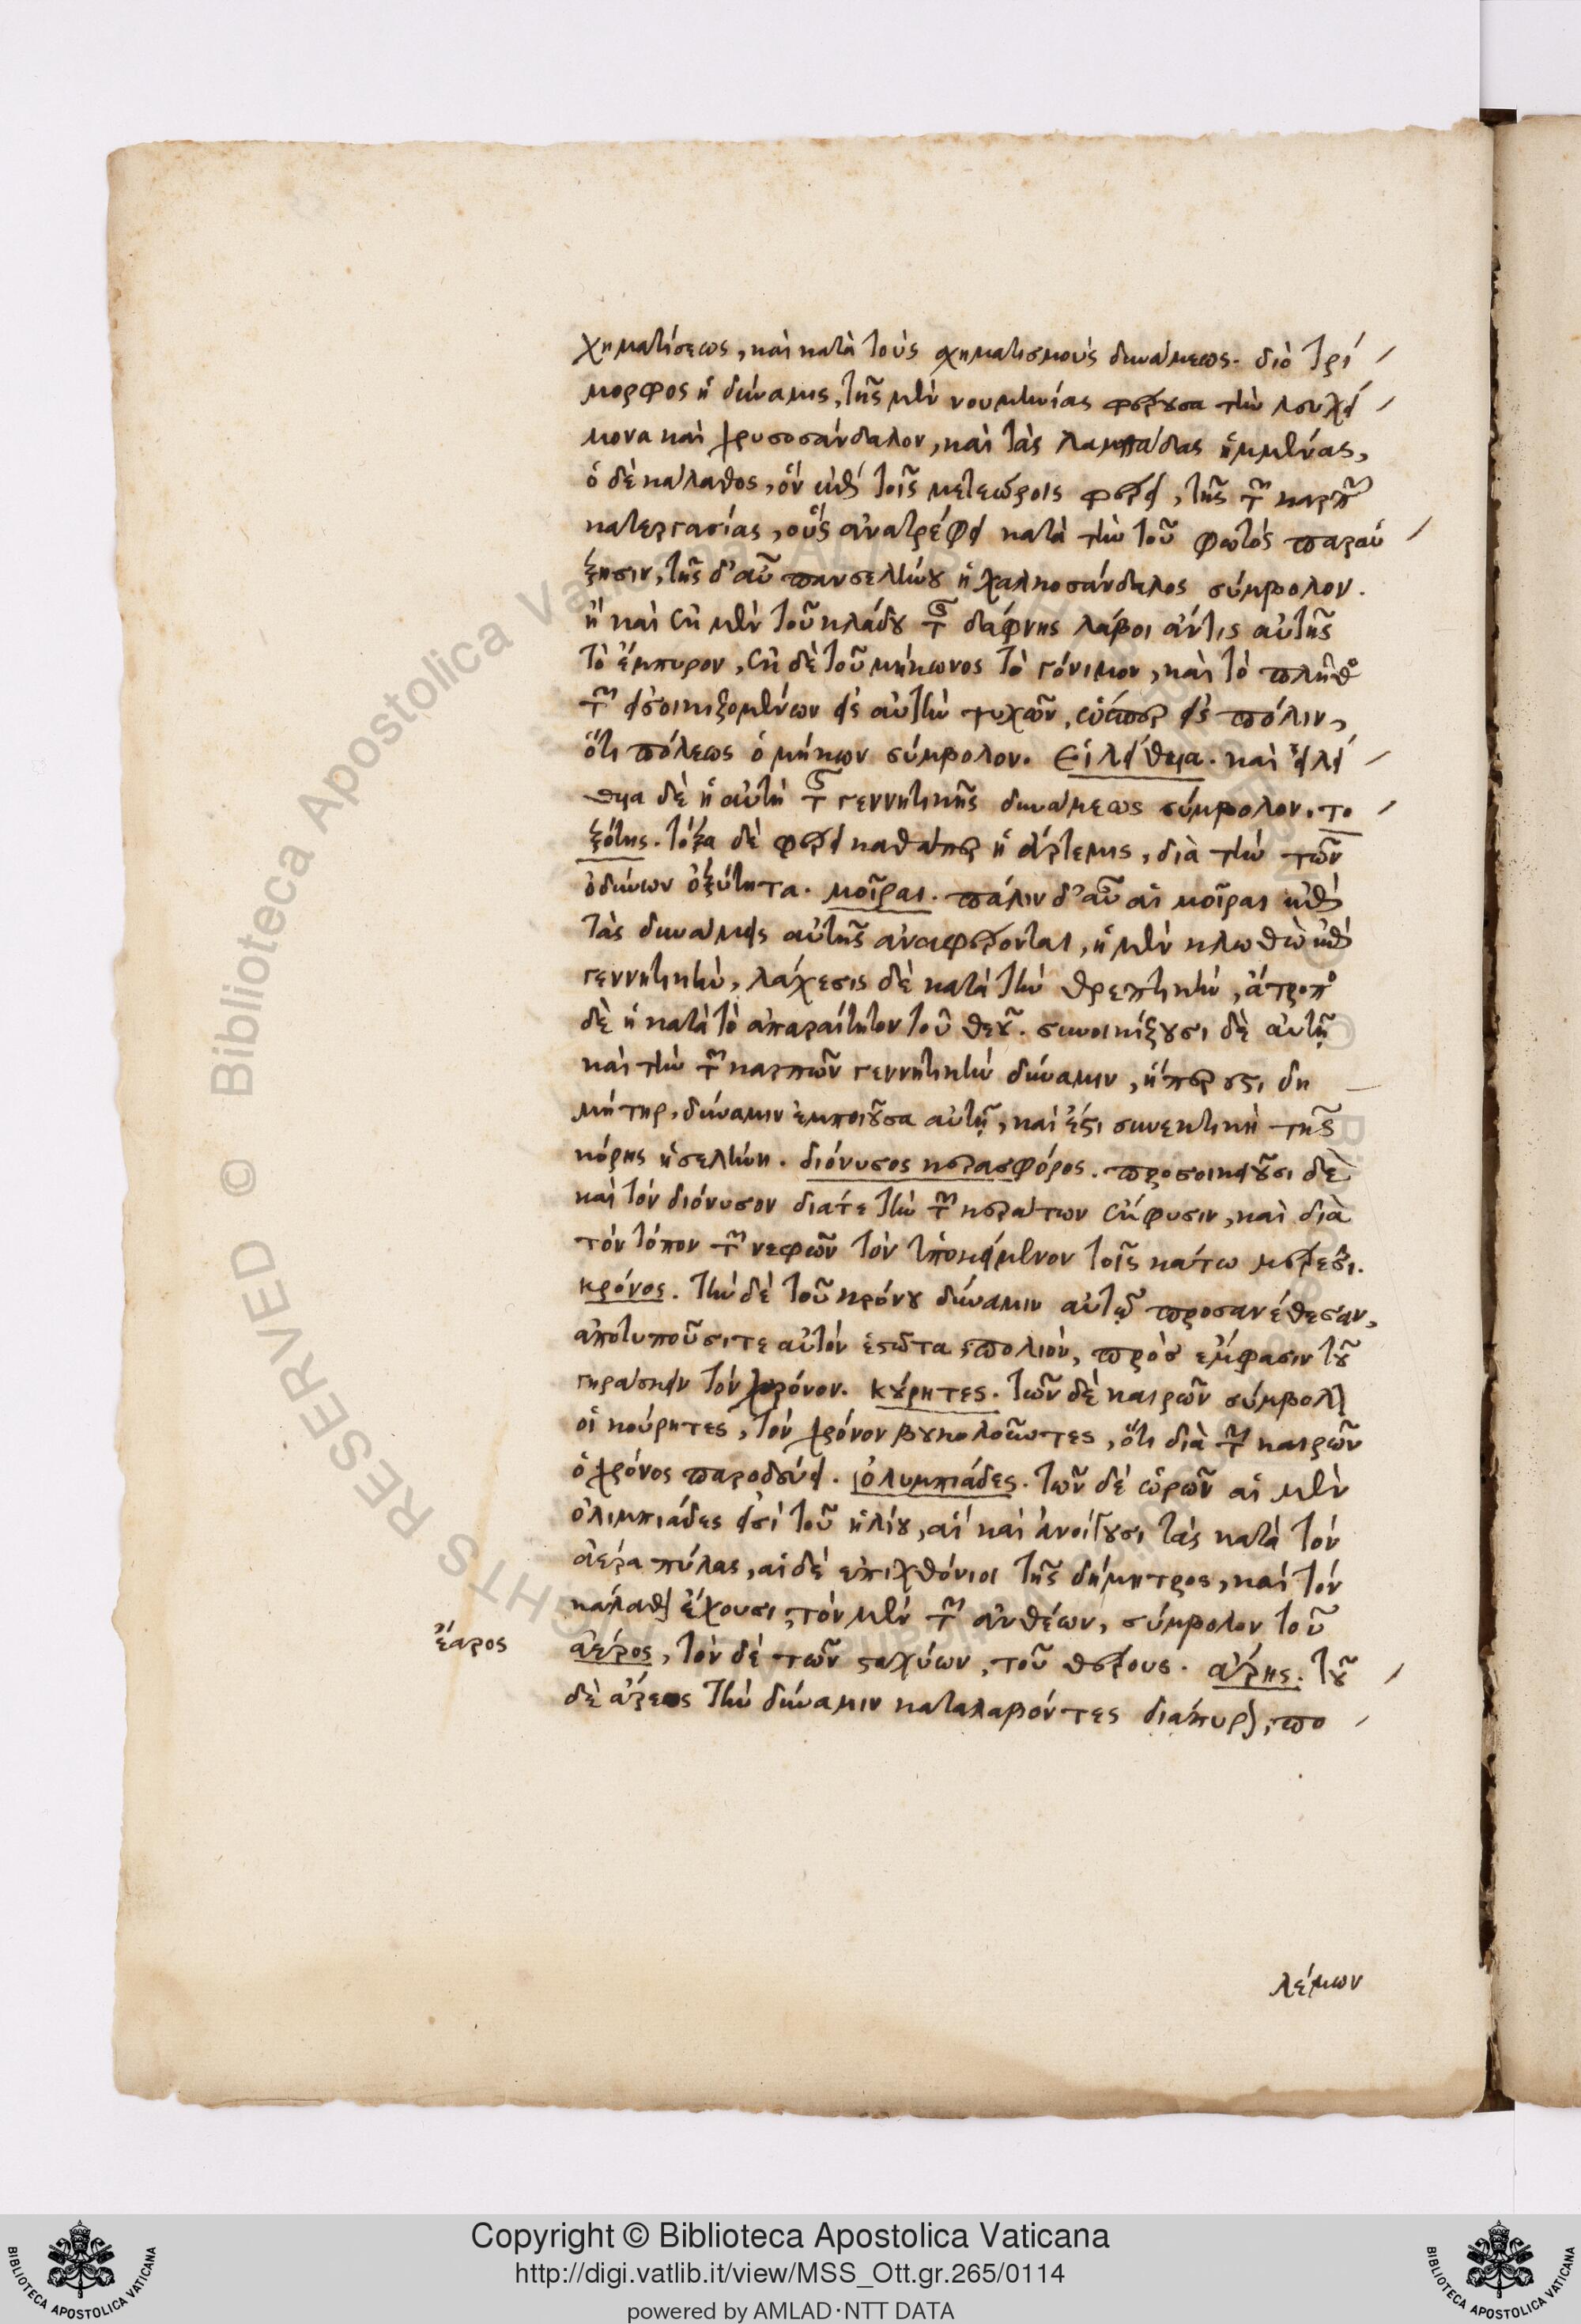 χηματίσεως, καὶ κατὰ τοὺς σχηματισμοὺς δυνάμεως. διὸ τρί
μορφος ἡ δύναμις, τῆς μὲν νουμηνίας φέρουσα τὴν λευχεί
μονα καὶ χρυσοσάνδαλον, καὶ τὰς λαμπάδας ἡμμένας,
ὁ δὲ κάλαθος, ὃν ἐπὶ τοῖς μετεώροις φέρει, τῆς τῶν καρπῶν
κατεργασίας, οὓς ἀνατρέφει κατὰ τὴν τοῦ φωτὸς παραύ
ξησιν, τῆς δ' αὖ πανσελήνου ἡ χαλκοσάνδαλος σύμβολον.
ἢ καὶ ἐκ μὲν τοῦ κλάδου τῆς δάφνης λάβοι ἄν τις αὐτῆς
τὸ ἔμπυρον, ἐκ δὲ τοῦ μήκωνος τὸ γόνιμον, καὶ τὸ πλῆθος
τῶν εἰσοικιζομένων εἰς αὐτὴν ψυχῶν, ὥσπερ εἰς πόλιν,
ὅτι πόλεως ὁ μήκων σύμβολον. Εἰλείθυα. καὶ εἰλεί
θυα δὲ ἡ αὐτὴ τῆς γεννητικῆς δυνάμεως σύμβολον. το
ξότης. τόξα δὲ φέρει καθάπερ ἡ ἄρτεμις, διὰ τὴν τῶν
ὀδύνων ὀξύτητα. μοῖραι. πάλιν δ' αὖ αἱ μοῖραι ἐπὶ
τὰς δυνάμεις αὐτῆς ἀναφέρονται, ἡ μὲν κλωθὼ ἐπὶ
γεννητικὴν, λάχεσις δὲ κατὰ τὴν θρεπτικὴν, ἄτροπος
δὲ ἡ κατὰ τὸ ἀπαραίτητον τοῦ θεοῦ. συνοικίζουσι δὲ αὐτῇ
καὶ τὴν τῶν καρπῶν γεννητικὴν δύναμιν, ἥπερ ἐστι δη
μήτηρ, δύναμιν ἐμποιοῦσα αὐτῇ, καὶ ἔστι συνεκτικὴ τῆς
κόρης ἡ σελήνη. διόνυσος κερασφόρος. προσοικειοῦσι δὲ
καὶ τὸν διόνυσον διά τε τὴν τῶν κεράτων ἔκφυσιν, καὶ διὰ
τὸν τόπον τῶν νεφῶν τὸν ὑποκείμενον τοῖς κάτω μέρεσι.
κρόνος. τὴν δὲ τοῦ κρόνου δύναμιν αὐτῷ προσανέθεσαν,
ἀποτυποῦσί τε αὐτὸν ἑστῶτα, πολιὸν, πρὸς ἔμφασιν τοῦ
γηράσκειν τὸν χρόνον. κούρητες. τῶν δὲ καιρῶν σύμβολον
οἱ κούρητες, τὸν χρόνον βουκολοῦντες, ὅτι διὰ τῶν καιρῶν
ὁ χρόνος παροδεύει. ὀλυμπιάδες. τῶν δὲ ὡρῶν αἱ μὲν
ὀλιμπιάδες εἰσὶ τοῦ ἡλίου, αἳ καὶ ἀνοίγουσι τὰς κατὰ τὸν
ἀέρα πύλας, αἱ δὲ ἐπιχθόνιοι τῆς δήμητρος, καὶ τὸν
κάλαθον ἔχουσι, τὸν μὲν τῶν ἀνθέων, σύμβολον τοῦ
ἔαρος
ἀέρος, τὸν δὲ τῶν σταχύων, τοῦ θέρους. ἄρης. τοῦ
δὲ ἄρεως τὴν δύναμιν καταλαβόντες διάπυρον, πο
λέμων
Copyright © Biblioteca Apostolica Vaticana
http://digi.vatlib.it/view/MSS_Ott.gr.265/0114
powered by AMLAD·NTT DATA